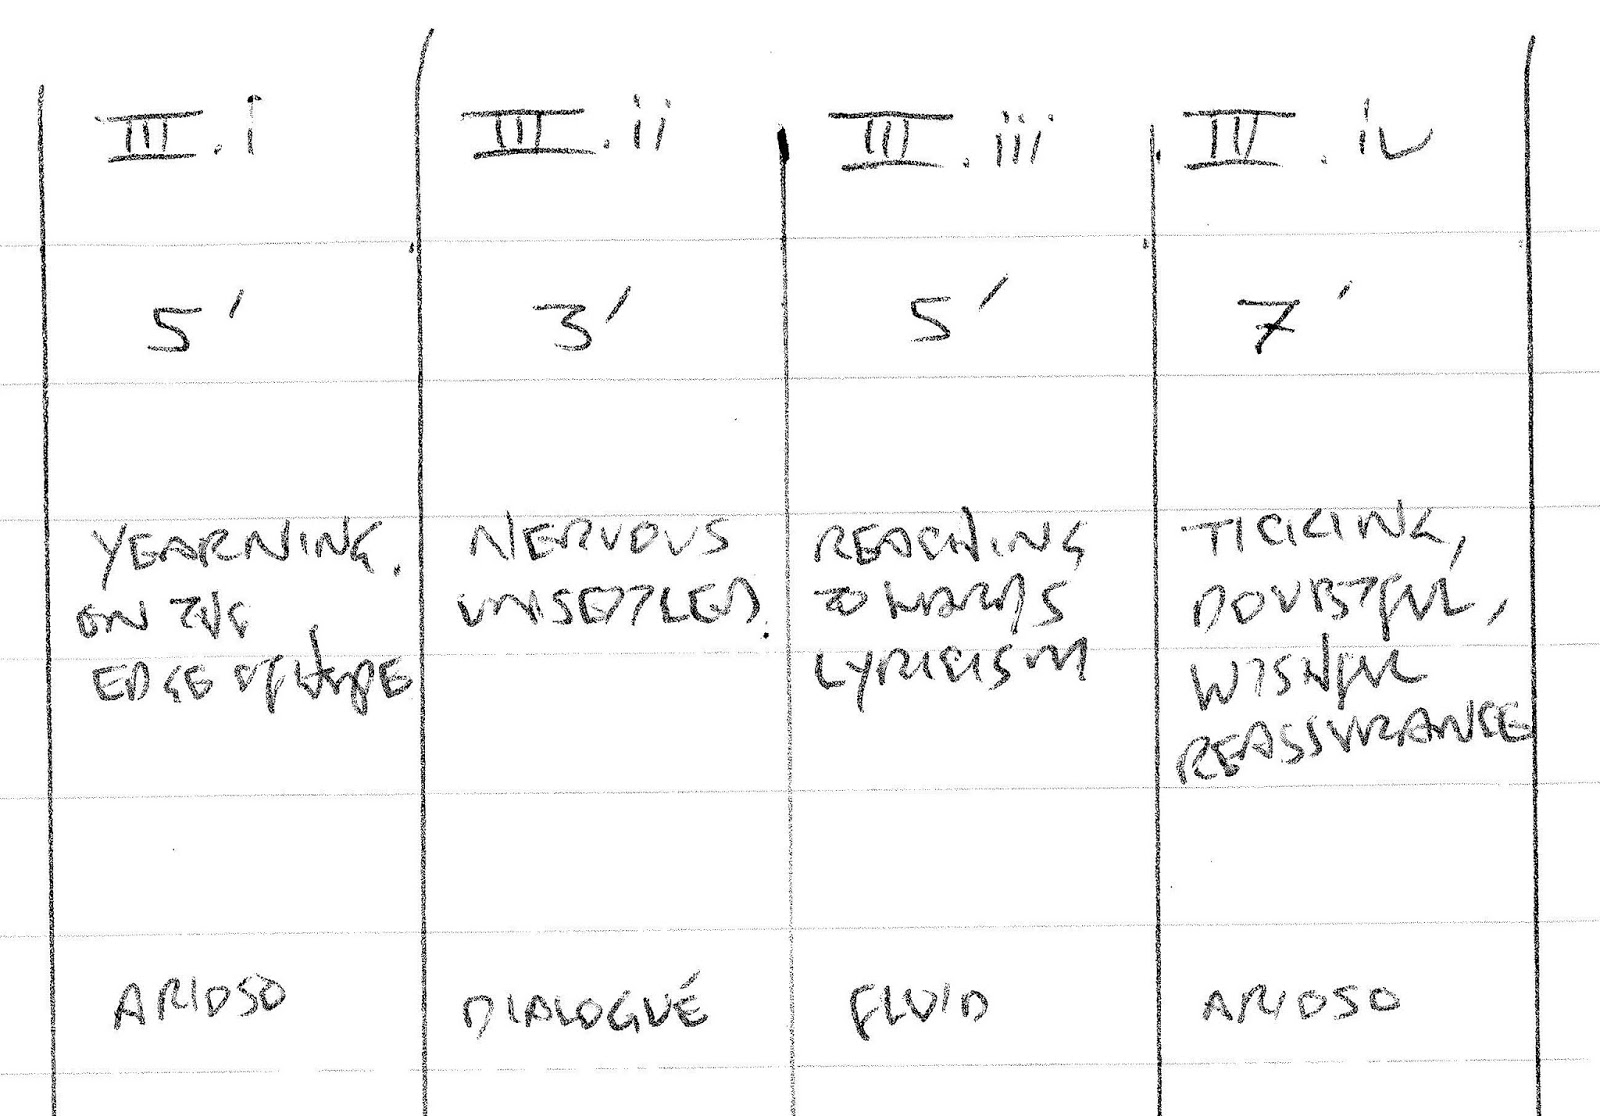 III.i
III.ii
III.iii
III.iv
5'
3'
5'
7'
YEARNING.
ON THE
EDGE OF HOPE
NERVOUS
UNSETTLED.
REACHING
TOWARDS
LYRICISM
TICKING,
DOUBTFUL,
WISHFUL
REASSURANCE
ARIOSO
DIALOGUÉ
FLUID
ARIOSO